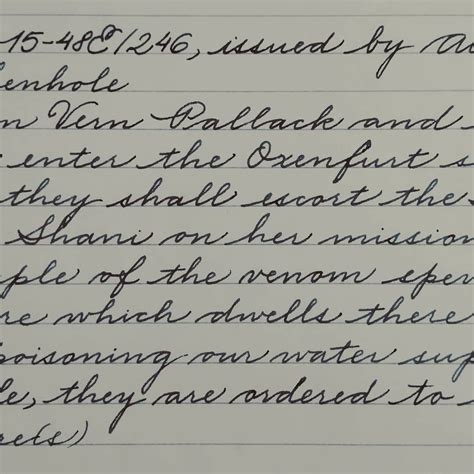 15-48E/246, issued by A
enhole
n Vern Pallack and
enter the Oxenfurt s
they shall escort the
Shani on her mission
ple of the venom sper
re which dwells there
poisoning our water sup
le, they are ordered to
re(s)